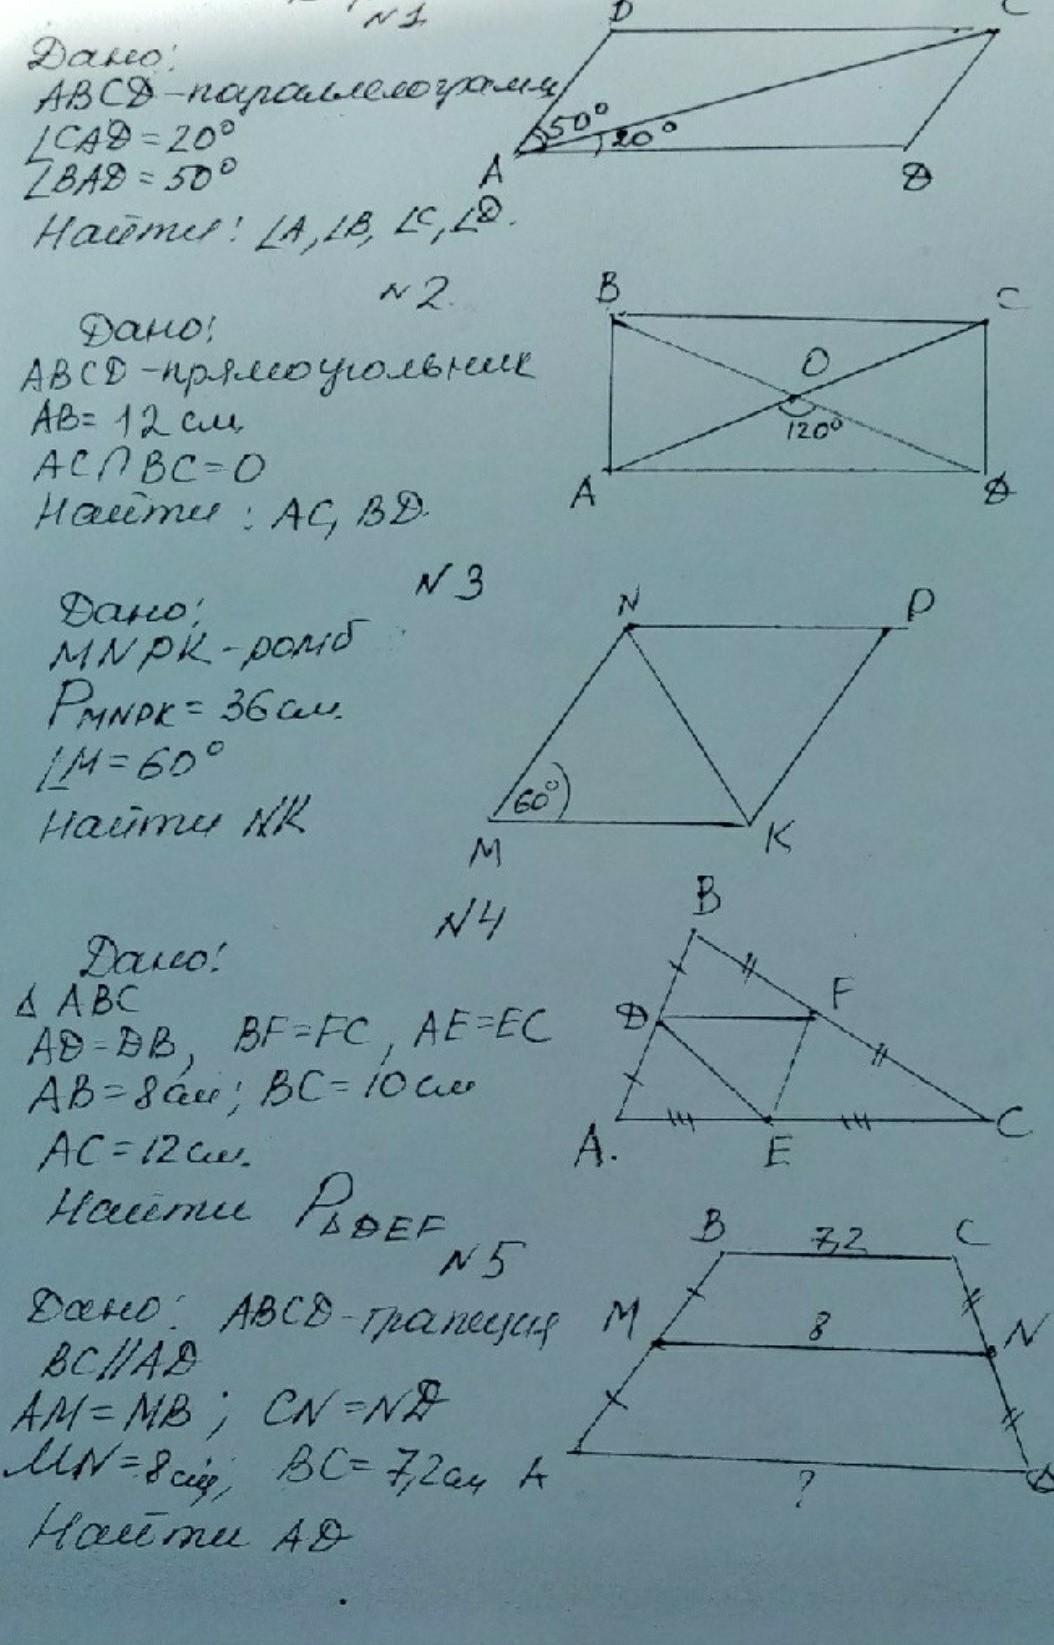 N1.
Дано:
ABCD-параллелограмм
∠CAD=20°
∠BAD=50°
Найти: ∠A, ∠B, ∠C, ∠D.
C
50°
20°
A
D
N2.
Дано:
ABCD-прямоугольник
AB=12см
AC∩BC=O
Найти: AC, BD.
B
C
O
120°
A
D
N3
Дано:
MNPK-ромб
P MNPK=36см.
∠M=60°
Найти NK
N
P
60°
M
K
N4
Дано:
Δ ABC
AD=DB, BF=FC, AE=EC
AB=8см; BC=10см
AC=12см.
Найти P ΔDEF
B
D
F
A.
E
C
N5
Дано: ABCD-трапеция
BC//AD
AM=MB; CN=ND
MN=8см; BC=7,2см
Найти AD
B
7,2
C
M
8
N
A
?
D